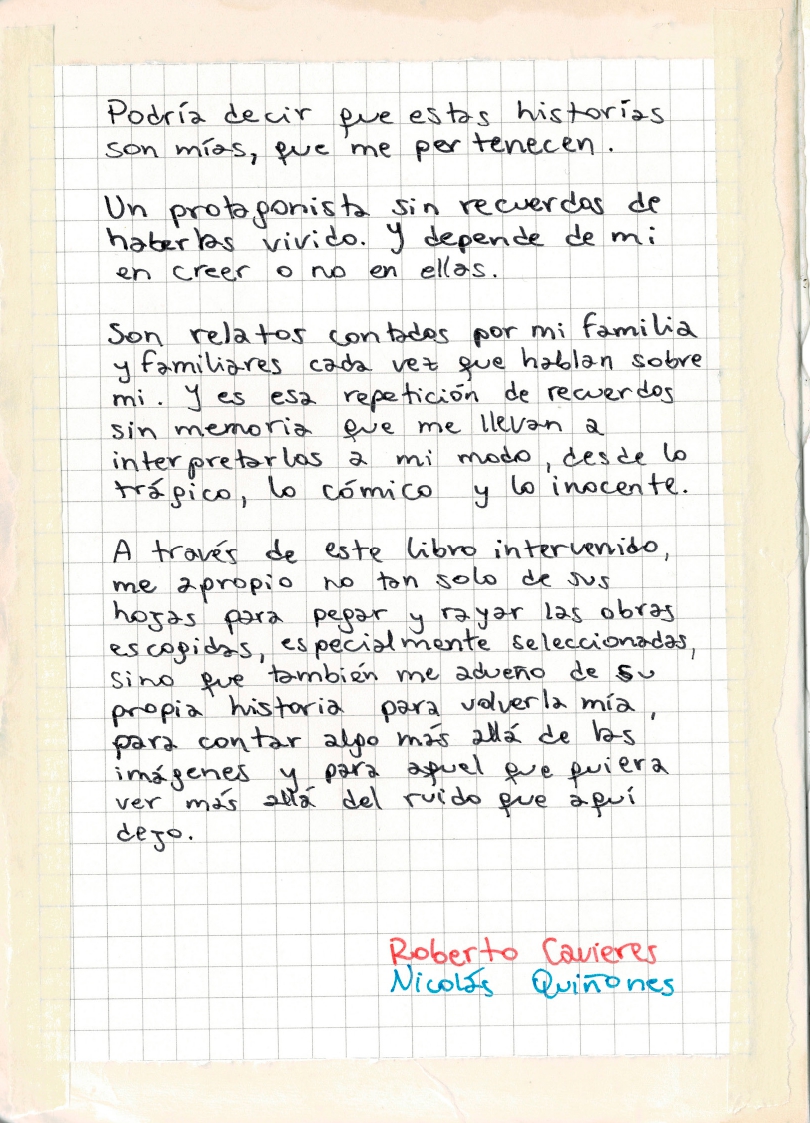 Podría decir que estas historias
son mías, que me pertenecen.
Un protagonista sin recuerdos de
haberlas vivido. Y depende de mi
en creer o no en ellas.
Son relatos contados por mi familia
y familiares cada vez que hablan sobre
mi. Y es esa repetición de recuerdos
sin memoria que me llevan a
interpretarlos a mi modo, desde lo
trágico, lo cómico y lo inocente.
A través de este libro intervenido,
me apropio no tan solo de sus
hojas para pegar y rayar las obras
escogidas, especialmente seleccionadas,
sino que también me adueño de su
propia historia para volverla mía,
para contar algo más allá de las
imágenes y para aquel que quiera
ver más allá del ruido que aquí
dejo.
Roberto Cavieres
Nicolás Quiñones